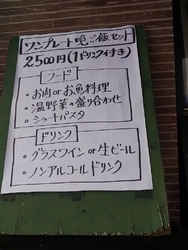 ワンプレート晩ご飯セット
2500円(1ドリンク付き)
フード
・お肉orお魚料理
・温野菜の盛り合わせ
・ショートパスタ
ドリンク
・グラスワイン or 生ビール
・ノンアルコールドリンク